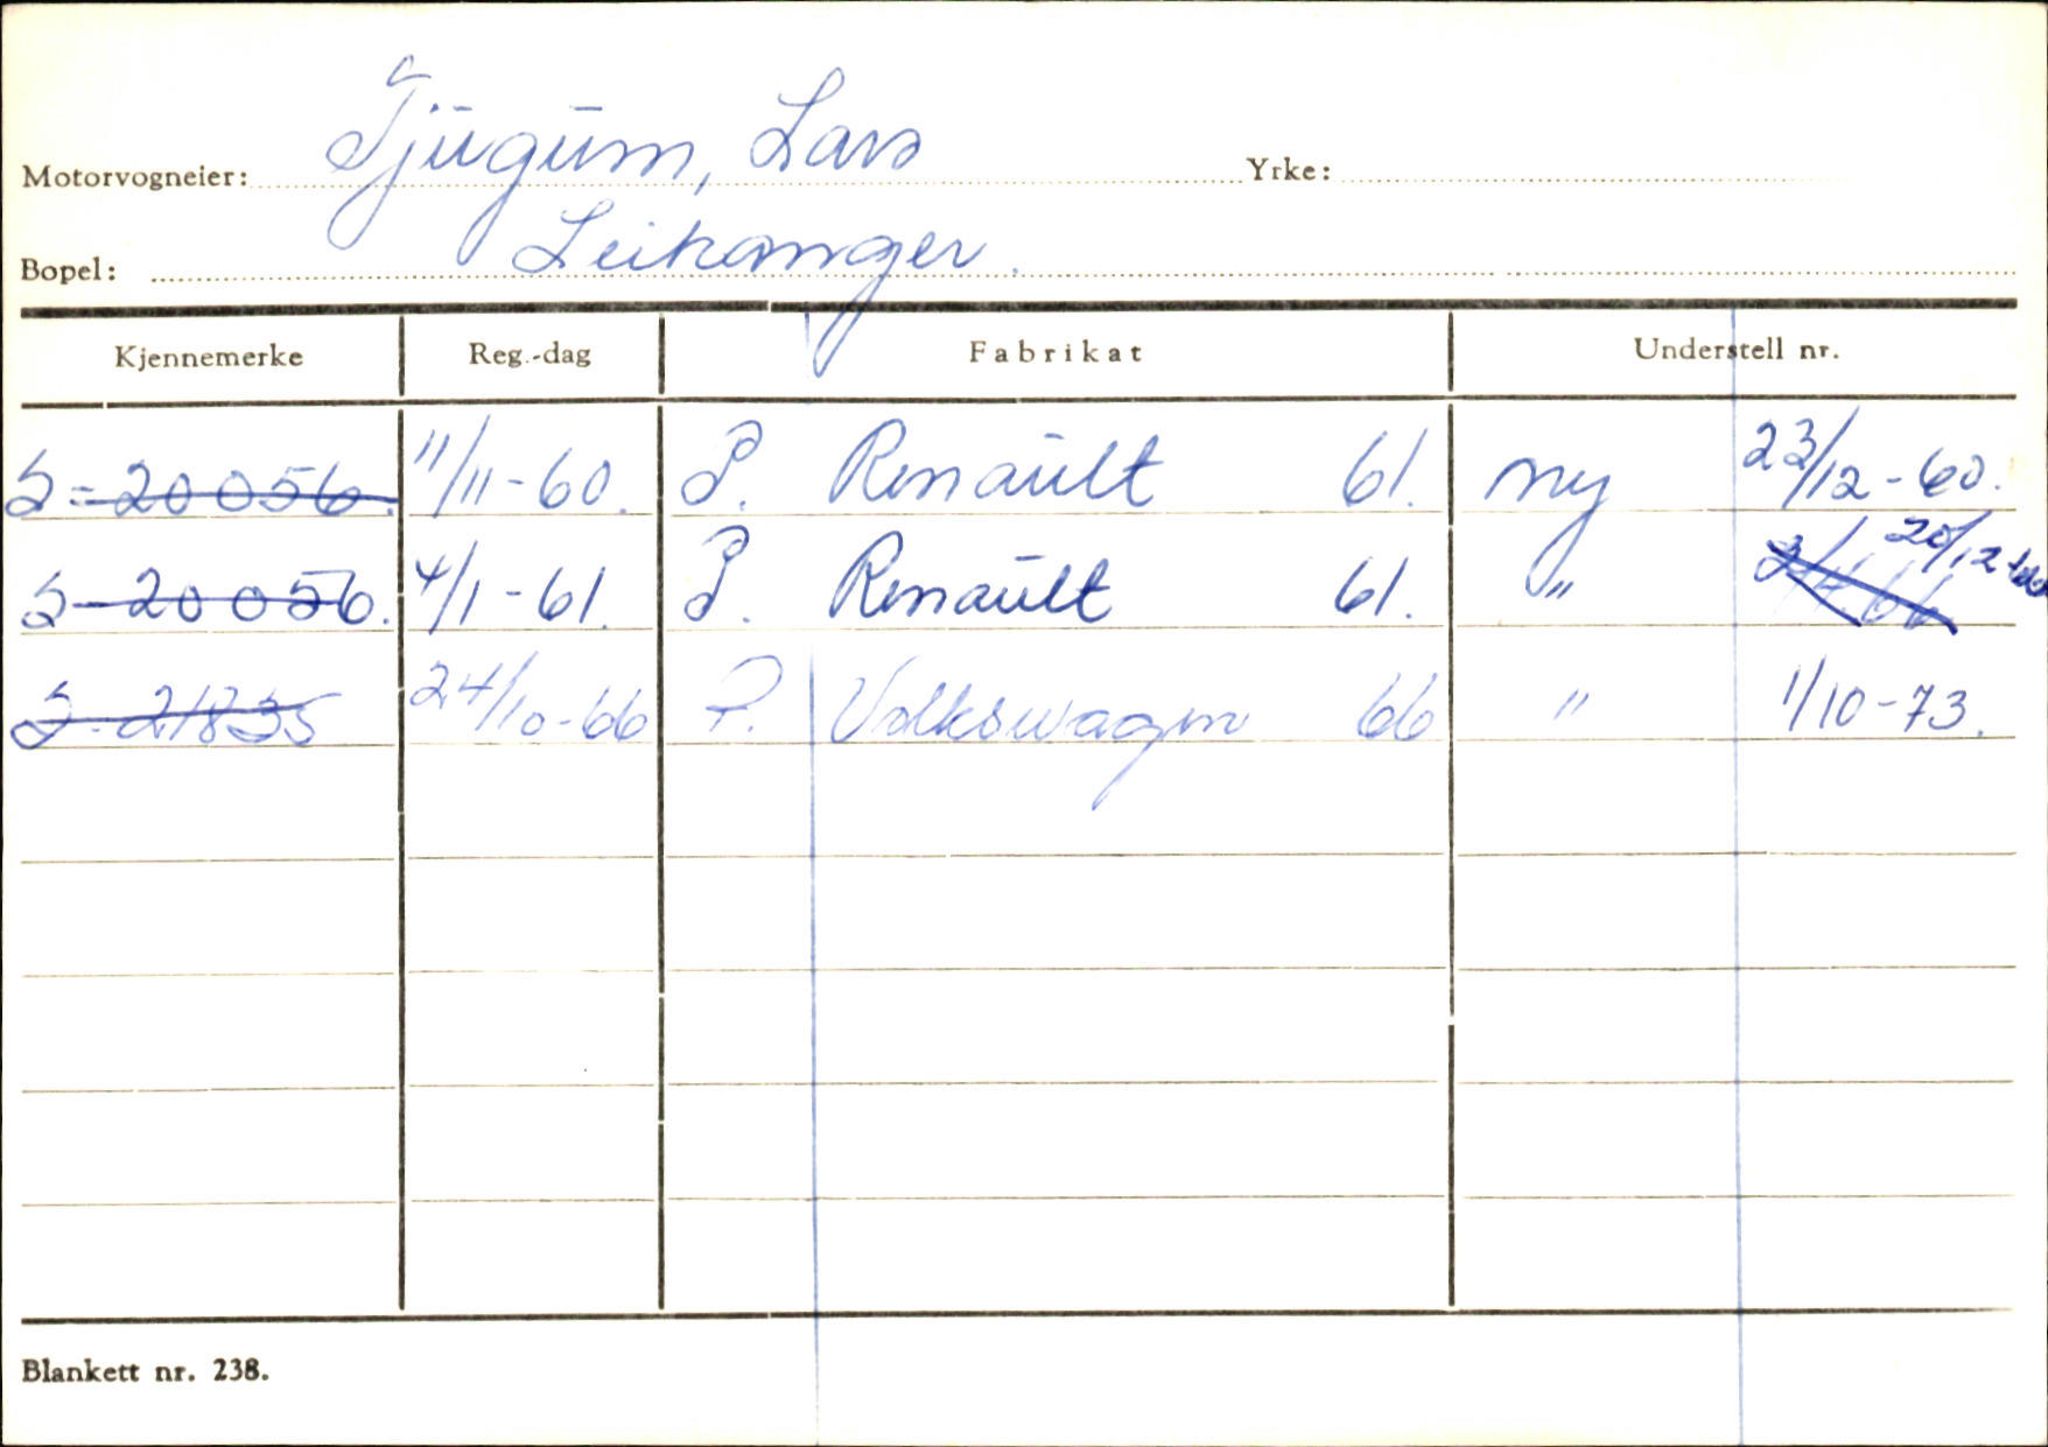 Motorvogneier: Tjugum, Lars Yrke:
Bopel: Leikanger.
Kjennemerke Reg.-dag Fabrikat Understell nr.
S-20056. 11/11-60. P. Renault 61. ny 23/12-60.
S-20056. 4/1-61. P. Renault 61. " 20/12
S-21835 24/10-66 P. Volkswagen 66 " 1/10-73.
Blankett nr. 238.